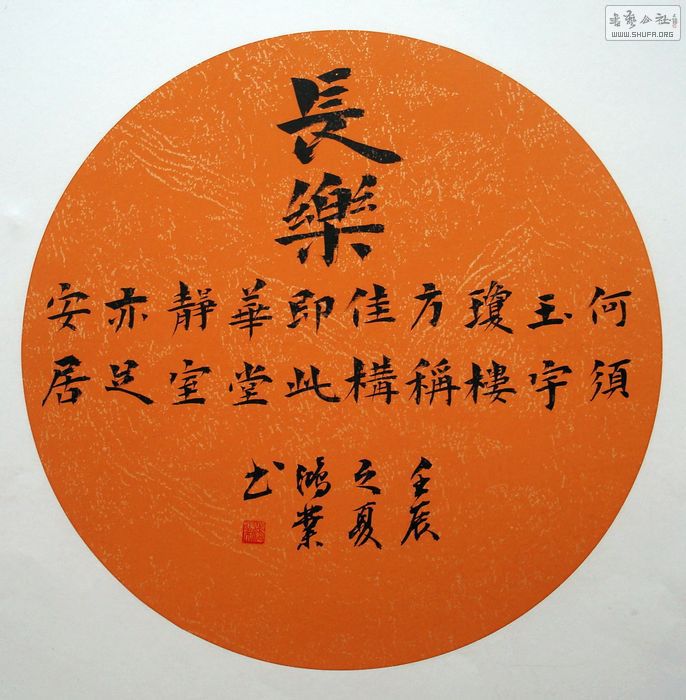 長樂
何須
玉宇
瓊樓
方稱
佳構
即此
華堂
靜室
亦足
安居
壬辰
之夏
鴻業
书
书艺公社
WWW.SHUFA.ORG